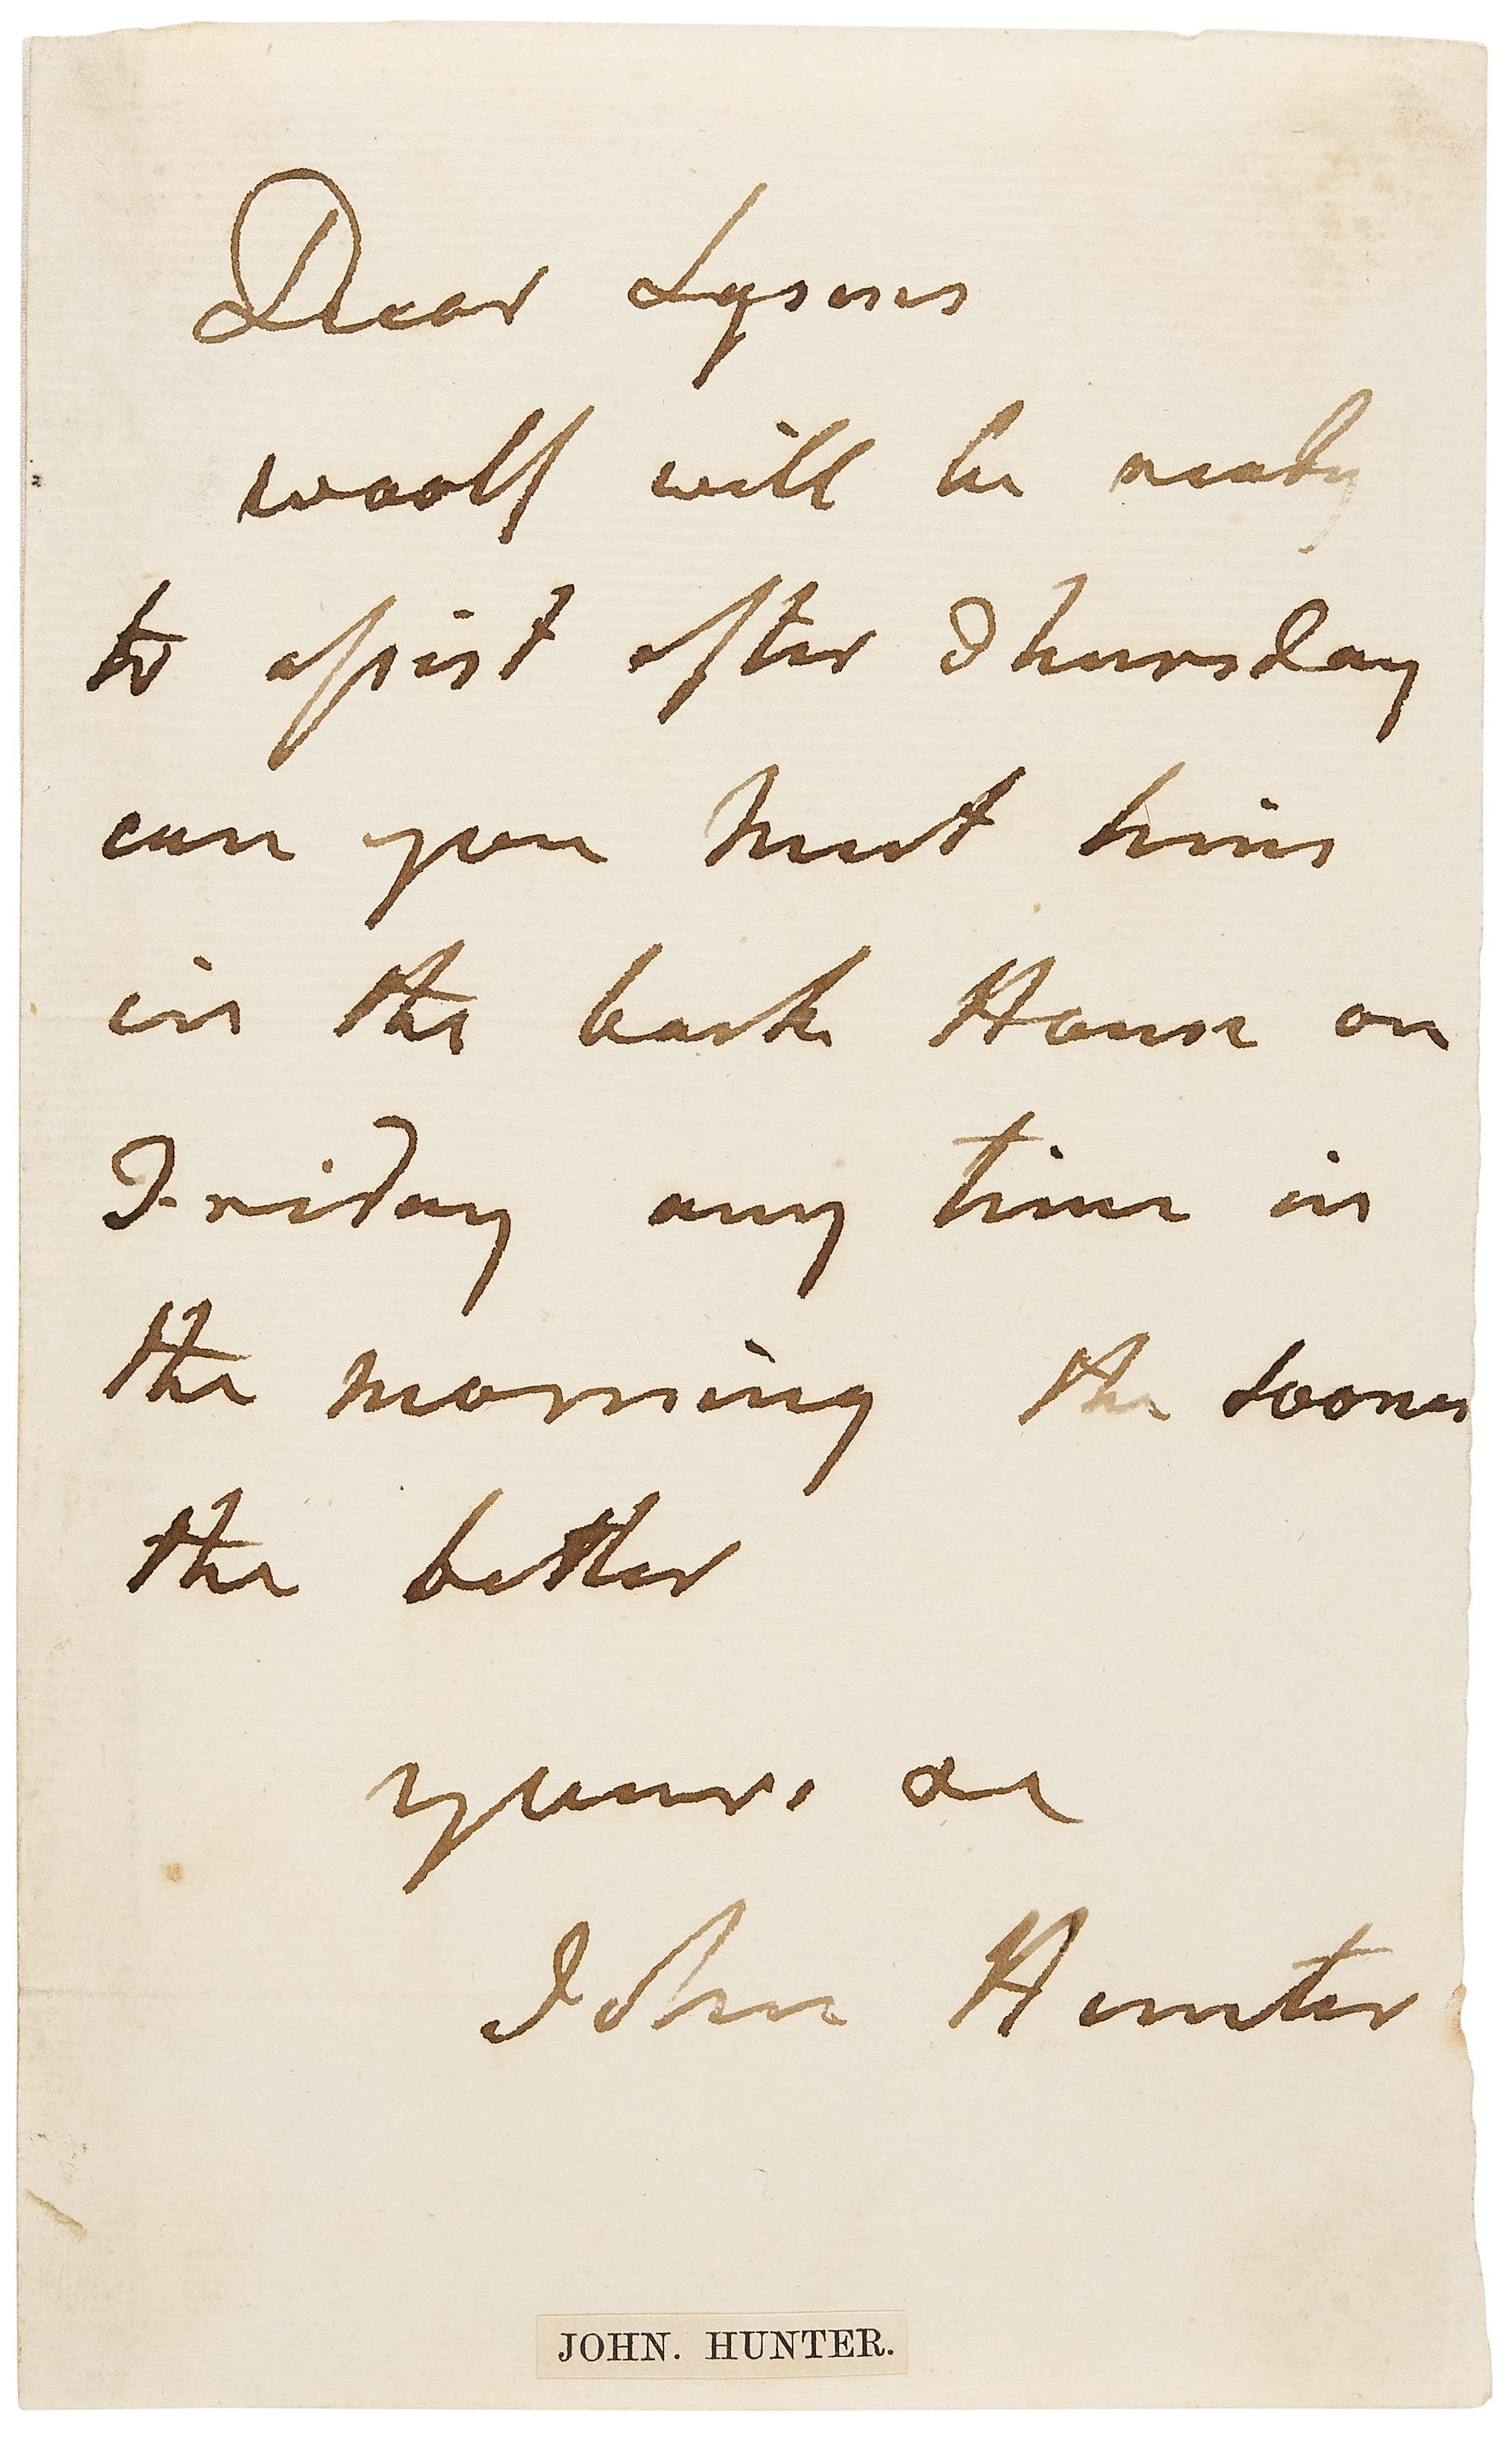 Dear Lysons
woolf will be ready
to assist after Thursday
can you meet him
in the back House on
Friday any time in
the morning the sooner
the better
yours &c
John Hunter
JOHN. HUNTER.